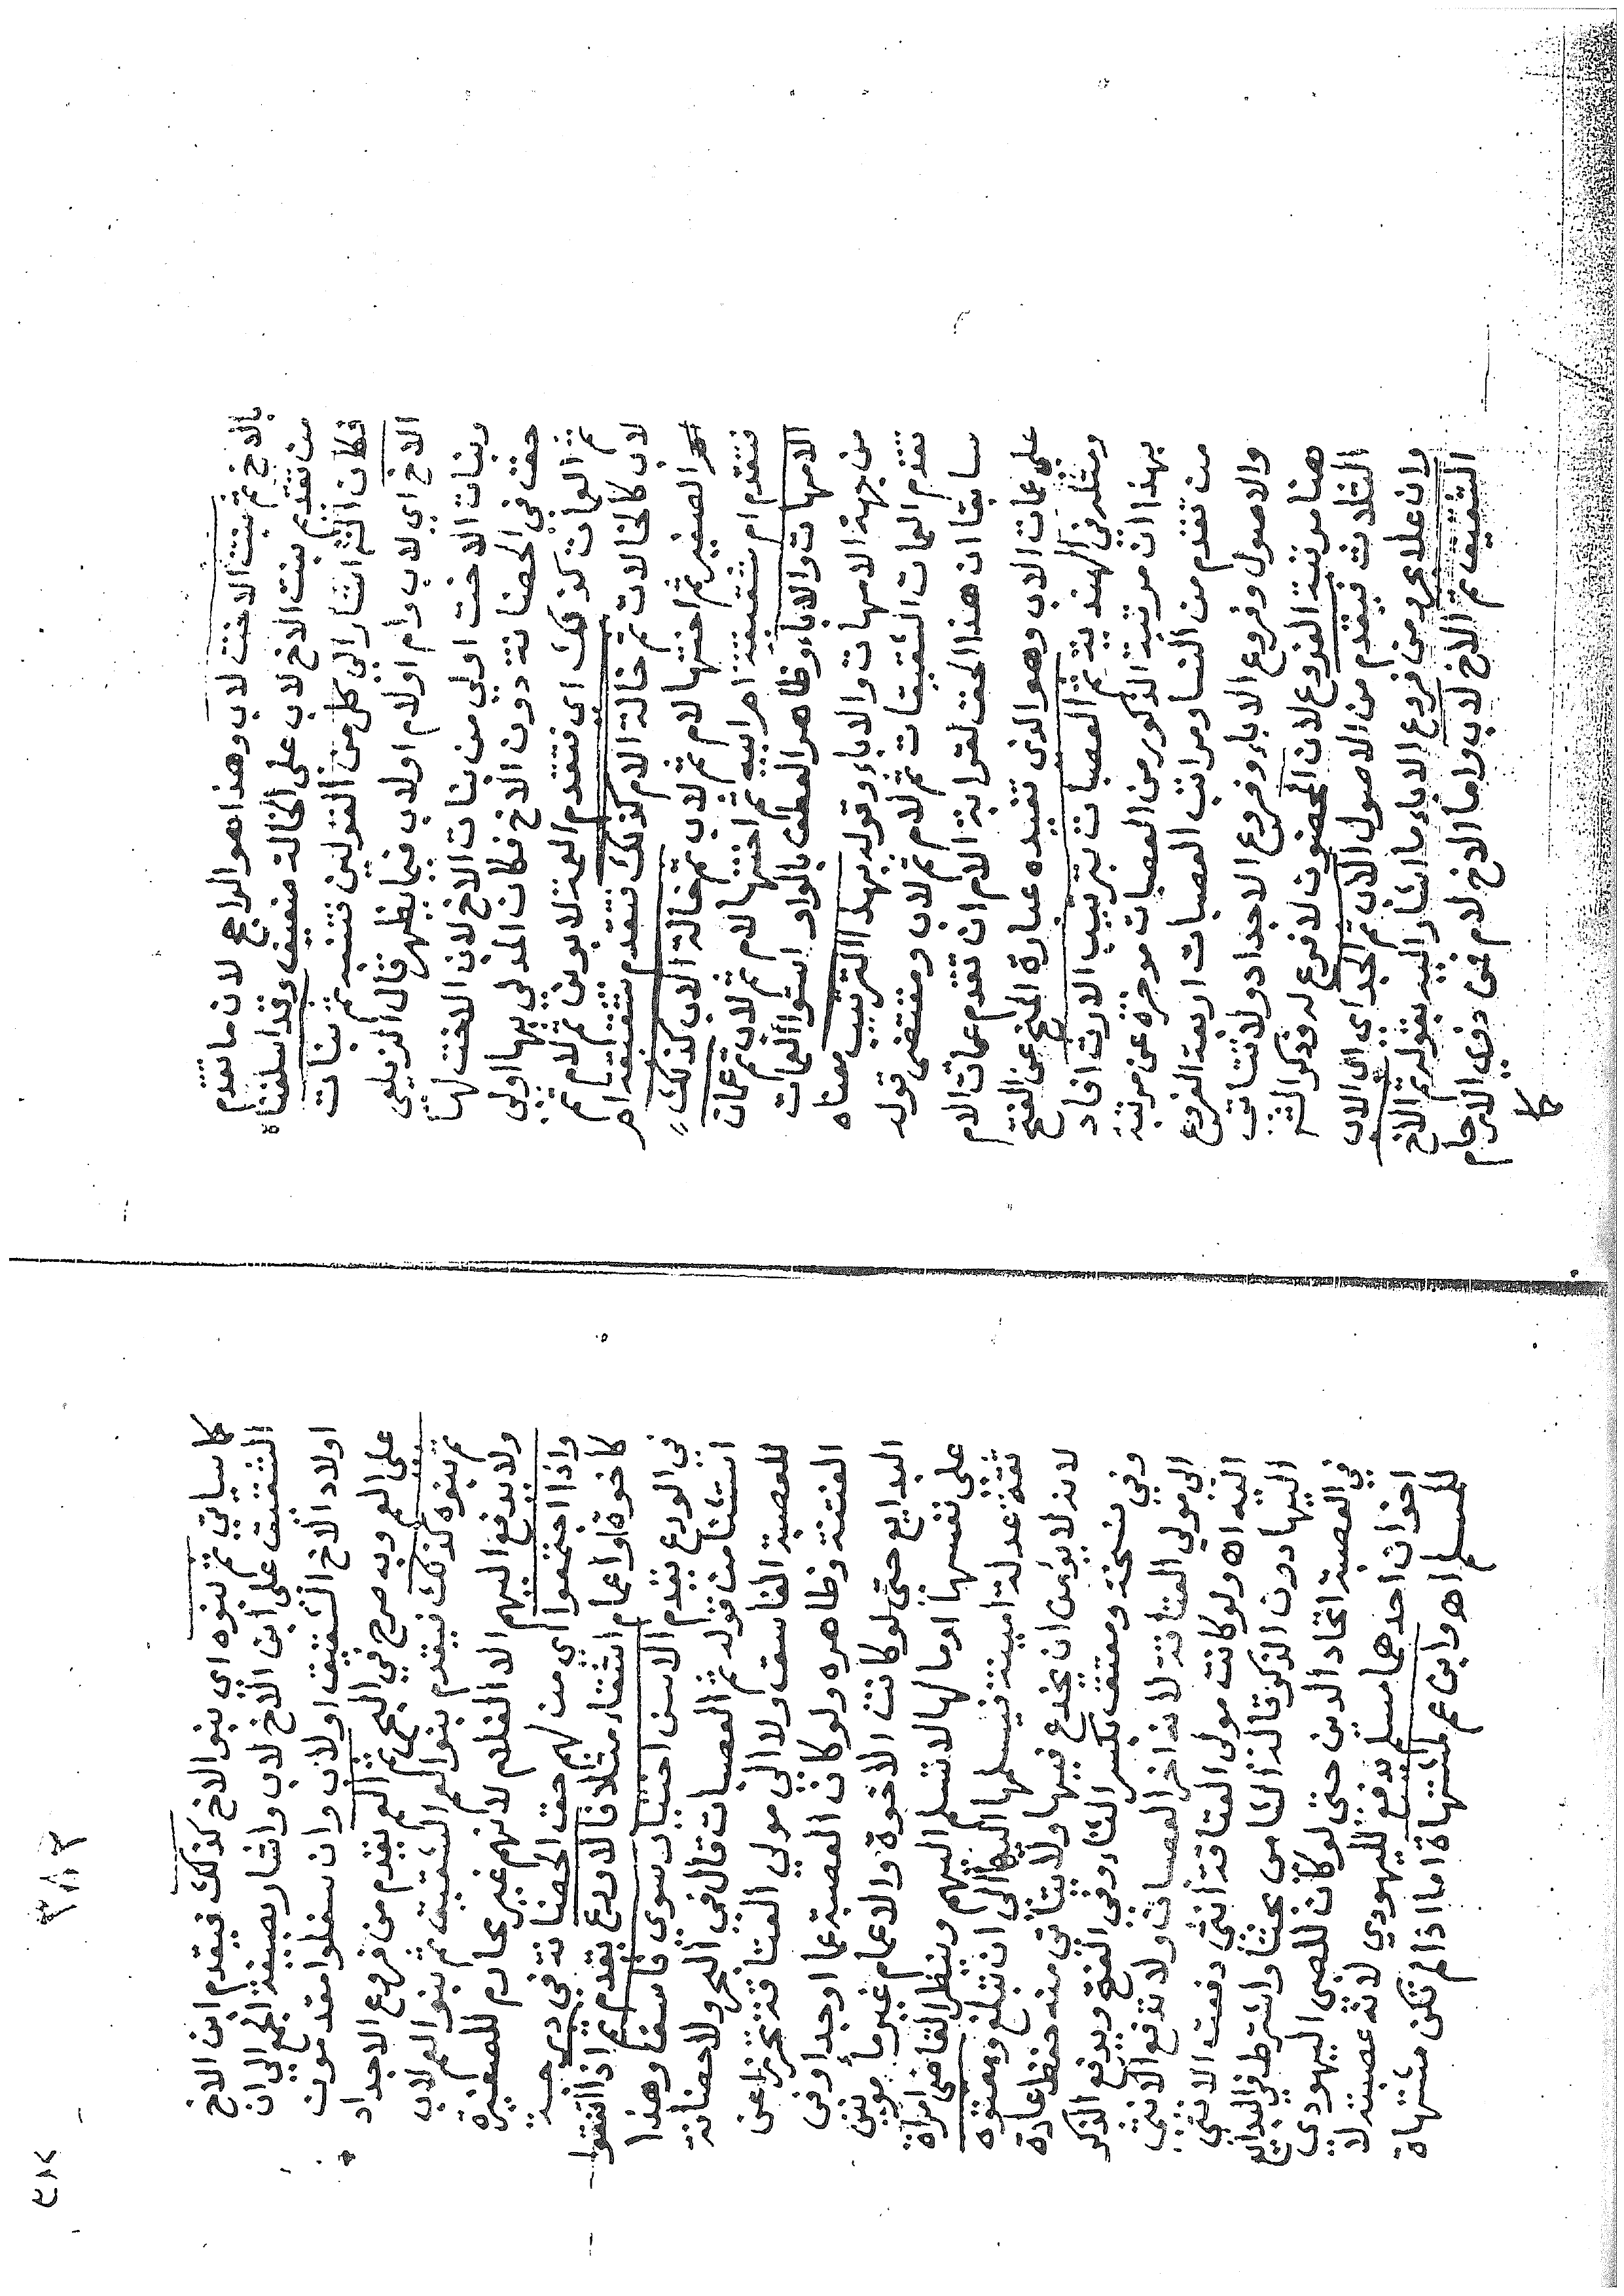 بالاخ ثم بنت الاخت لاب وهذا هو الراجح لان ما تقدم
من تقديم بنت الاخ لاب على الخالة ضعيف وقد اسلفناه
فكان الشر اشار الى كل من القولين فتنبه ثم بنات
الاخ اي لاب وام او لام او لاب فيما يظهر قال الزيلعي
وبنات الاخت اولى من بنات الاخ لان الاخت لها
حق في الحضانة دون الاخ فكان المدلي بها اولى
ثم العمات كذلك اى فتقدم العمة لابوين ثم لام ثم
لاب كالخالات ثم خالة الام كذلك تتقدم شقيقة ام
الصغير ثم اختها لام ثم لاب ثم خالة الاب كذلك
فتقدم ام شقيقة ام ابيه ثم اختها لام ثم لاب ثم عمات
الامهات والاباء وظاهر العطف بالواو استوا العمات
من جهة الامهات والاباء وقوله بهذا الترتيب معناه
تقدم العمات الشقيقات ثم لام ثم لاب ومقتضى قوله
سابقا ان هذا الحق لقرابة الام ان تقدم عمات الام
على عمات الاب وهو الذى تفيده عبارة المنح عن الفتح
ومثله في الهندية ثم العصبات بترتيب الارث افاد
بهذا ان مرتبة الذكور من العصبات موخرة عن مرتبة
من تقدم من النسا ومراتب العصبات اربعة الفروع
والاصول وفروع الاباء وفروع الاجداد ولا تتات
هنا مرتبة الفروع لان المحضون لا فرع له وذكر الشر
الثلاث فيقدم من الاصول الاب ثم الجد اى ابى الاب
وان علا ومن فروع الاباء ما اشار اليه بقوله ثم الاخ
الشقيق ثم الاخ لاب واما الاخ لام فمن ذوي الارحام
كما
كما سياتي ثم بنوه اي بنو الاخ كذلك فيقدم ابن الاخ
الشقيق على ابن الاخ لاب واشار بصيغة الجمع الى ان
اولاد الاخ الشقيق او لاب وان سفلوا مقدمون
على العم وبه صرح في البحر ثم العم يقدم من فروع الاجداد
ثم بنوه كذلك فيقدم بنو العم الشقيق ثم بنو العم لاب
ولا يدفع اليهم الا الغلام لانهم غير محارم للصغيرة
واذا اجتمعوا اي من لهم حق الحضانة في درجة
كاخوة واعمام اشقاء مثلا فالاورع يقدم ثم اذا اتفقوا
في الورع يقدم الاسن اختيار سوى فاسق وهذا
استثنا من قوله ثم العصبات قال في البحر ولا حضانة
للعصبة الفاسق ولا الى مولى العتاقة تحرزا عن
الفتنة وظاهره ولو كان العصبة عما او جدا وفى
البدايع حتى لو كانت الاخوة والاعمام غير مأمونين
على نفسها او مالها لا تسلم اليهم وينظر القاضى امراة
ثقة عدلة امينة فيسلمها اليها الى ان تبلغ ومعتوه
لانه لا يؤمن ان يخدع فيها ولا يتأتى منه حفظ عادة
وفي نسخة ومعتق بكسر التاء وفي الفتح ويدفع الذكر
الى مولى العتاقة لانه اخر العصبات ولا تدفع الانثى
اليه اه ولو كانت مولى العتاقة انثى دفعت الانثى
اليها دون الذكر قاله الشامى بحثا واشترط في البدايع
في العصبة اتحاد الدين حتى لو كان للصبى اليهودى
اخوان احدهما مسلم يدفع لليهودي لانه عصبته لا
للمسلم اه وابن عم لمشتهاة اما اذا لم تكن مشتهاة